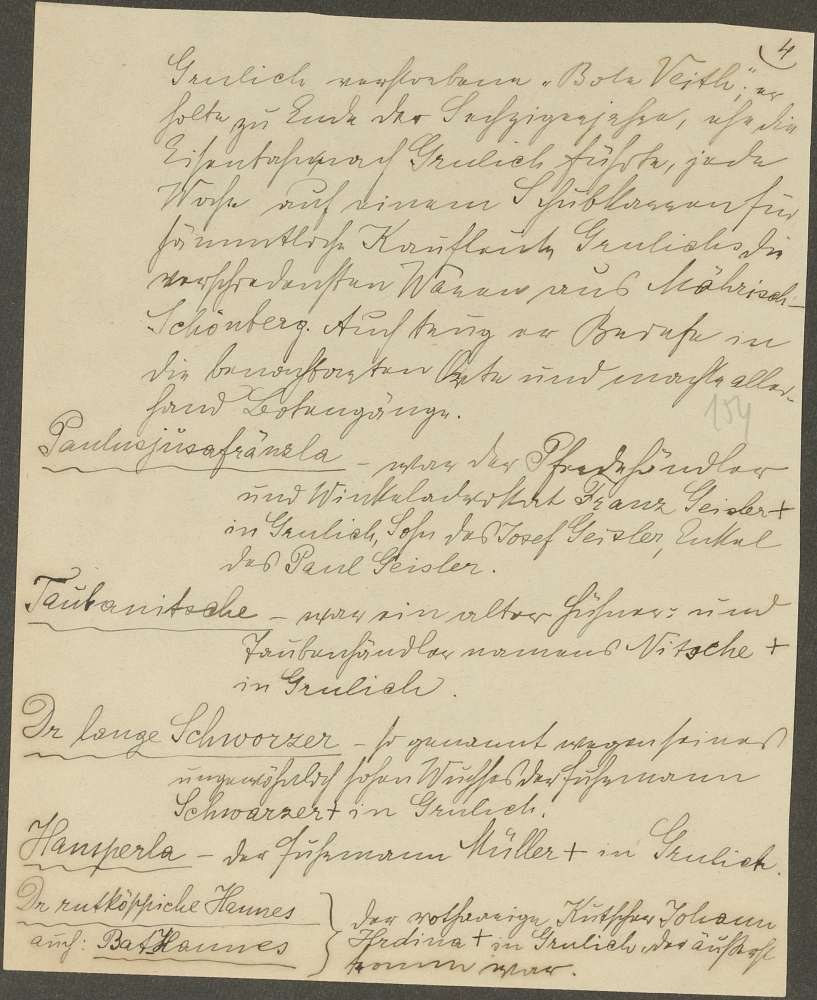 4
Grulich verstorbene „Bote Veith“; er
holte zu Ende der Sechzigerjahre, ehe die
Eisenbahn nach Grulich führte, jede
Woche auf einem Schubkarren für
sämmtliche Kaufleute Grulichs die
verschiedensten Waren aus Mährisch-
Schönberg. Auch trug er Briefe in
die benachbarten Orte und machte aller-
hand Botengänge.
154
Paulusjüsafränzla – war der Pferdehändler
und Winkeladvokat Franz Geisler +
in Grulich, Sohn des Josef Geisler, Enkel
des Paul Geisler.
Taubanitsche – war ein alter Hühner= und
Taubenhändler namens Nitsche +
in Grulich.
Dr lange Schworzer – so genannt wegen seines
ungewöhnlich hohen Wuchses der Fuhrmann
Schwarzer + in Grulich.
Hansperla – der Fuhrmann Müller + in Grulich.
Dr rutköppiche Hannes
auch: Bathannes
der rothhaarige Kutscher Johann
Hrdina + in Grulich, der äußerst
fromm war.